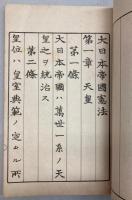 大日本帝國憲法
第一章 天皇
第一條
大日本帝國ハ萬世一系ノ天
皇之ヲ統治ス
第二條
皇位ハ皇室典範ノ定ムル所